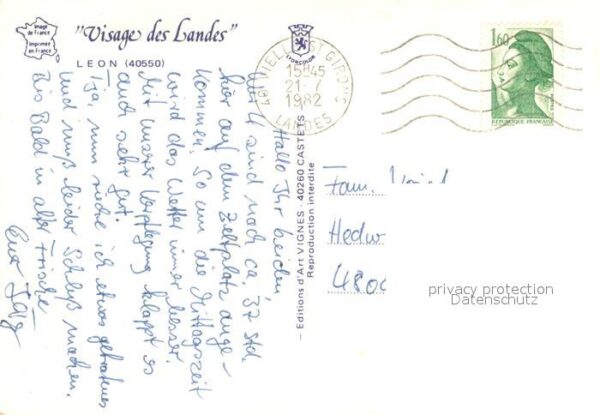 Image
de France
Imprimée
en France
"Visage des Landes"
LEON (40550)
LYONCOLOR
VIELLE ST GIRONS
15H45
21-7
1982
LANDES
1,60
RÉPUBLIQUE FRANÇAISE
Hallo Ihr beiden,
wir sind nach ca. 32 Std.
hier auf dem Zeltplatz ange-
kommen. So um die Mittagszeit
wird das Wetter immer besser.
Mit unserer Verpflegung klappt es
auch sehr gut.
Tja, nun rieche ich etwas gebratenes
und muß leider Schluß machen.
Bis Bald in alter Frische
Euer Jörg
– Editions d'Art VIGNES - 40260 CASTETS –
Reproduction interdite
Fam.
Hedw
480
privacy protection
Datenschutz